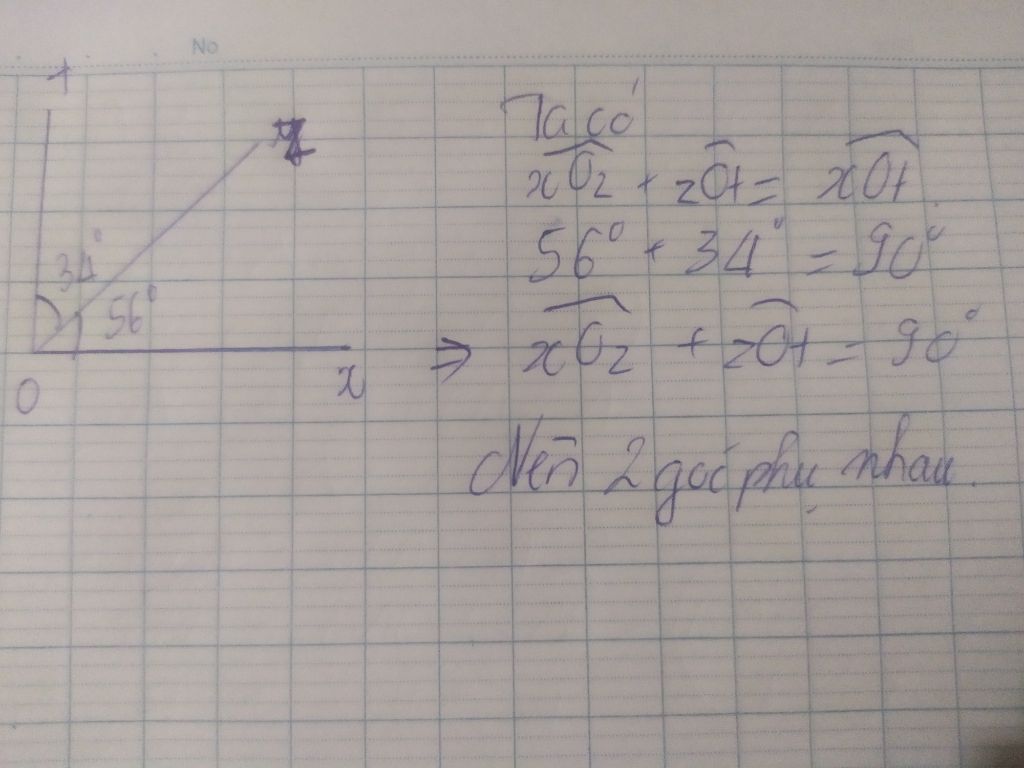 No
t
z
34°
56°
O
x
Ta có
xOz + zOt = xOt
56° + 34° = 90°
=> xOz + zOt = 90°
Nên 2 góc phụ nhau.